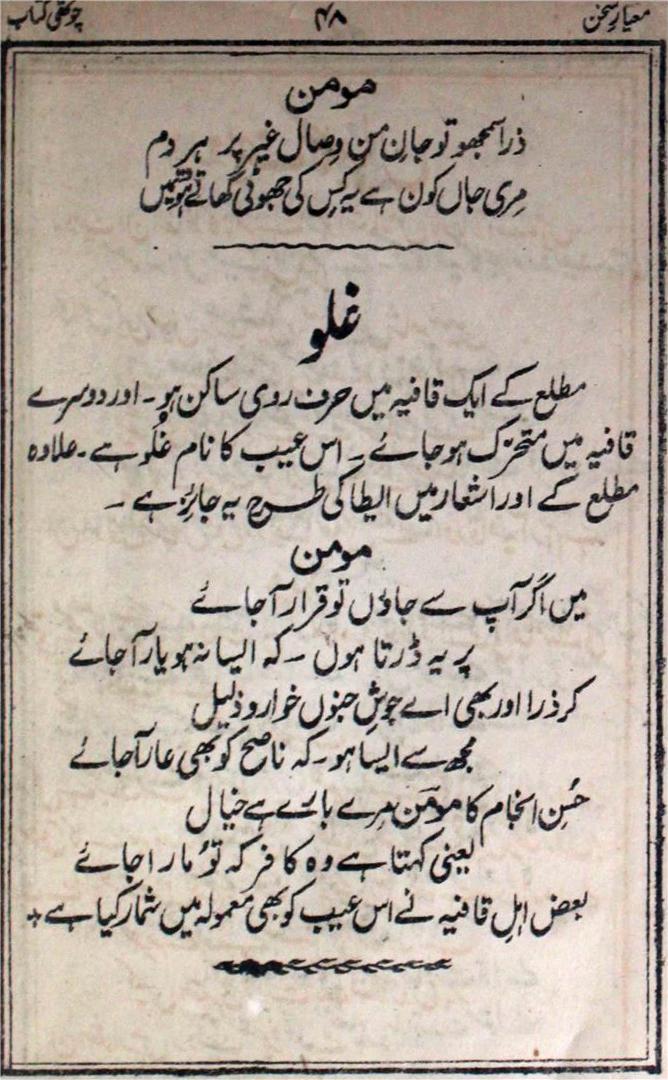 معیار سخن ۴۸ چوتھی کتاب
مومن
ذرا سمجھو تو جانِ من وِصال غیر پر ہر دم
مِری جاں کون ہے یہ کِس کی جھوٹی کھاتے ہو قسمیں
غلو
مطلع کے ایک قافیہ میں حرف روی ساکن ہو۔ اور دوسرے
قافیہ میں متحرّک ہو جائے۔ اس عیب کا نام غُلو ہے۔ علاوہ
مطلع کے اور اشعار میں ایطا کی طرح یہ جائز ہے۔
مومن
میں اگر آپ سے جاؤں تو قرار آ جائے
پر یہ ڈرتا ہوں۔ کہ ایسا نہ ہو یار آ جائے
کر ذرا اور بھی اے جوشِ جنوں خوار و ذلیل
مجھ سے ایسا ہو۔ کہ ناصح کو بھی عار آ جائے
حُسنِ انجام کا مومن مِرے بارے ہے خیال
یعنی کہتا ہے وہ کافر کہ تُو مارا جائے
بعض اہلِ قافیہ نے اس عیب کو بھی معمولہ میں شمار کیا ہے ٭